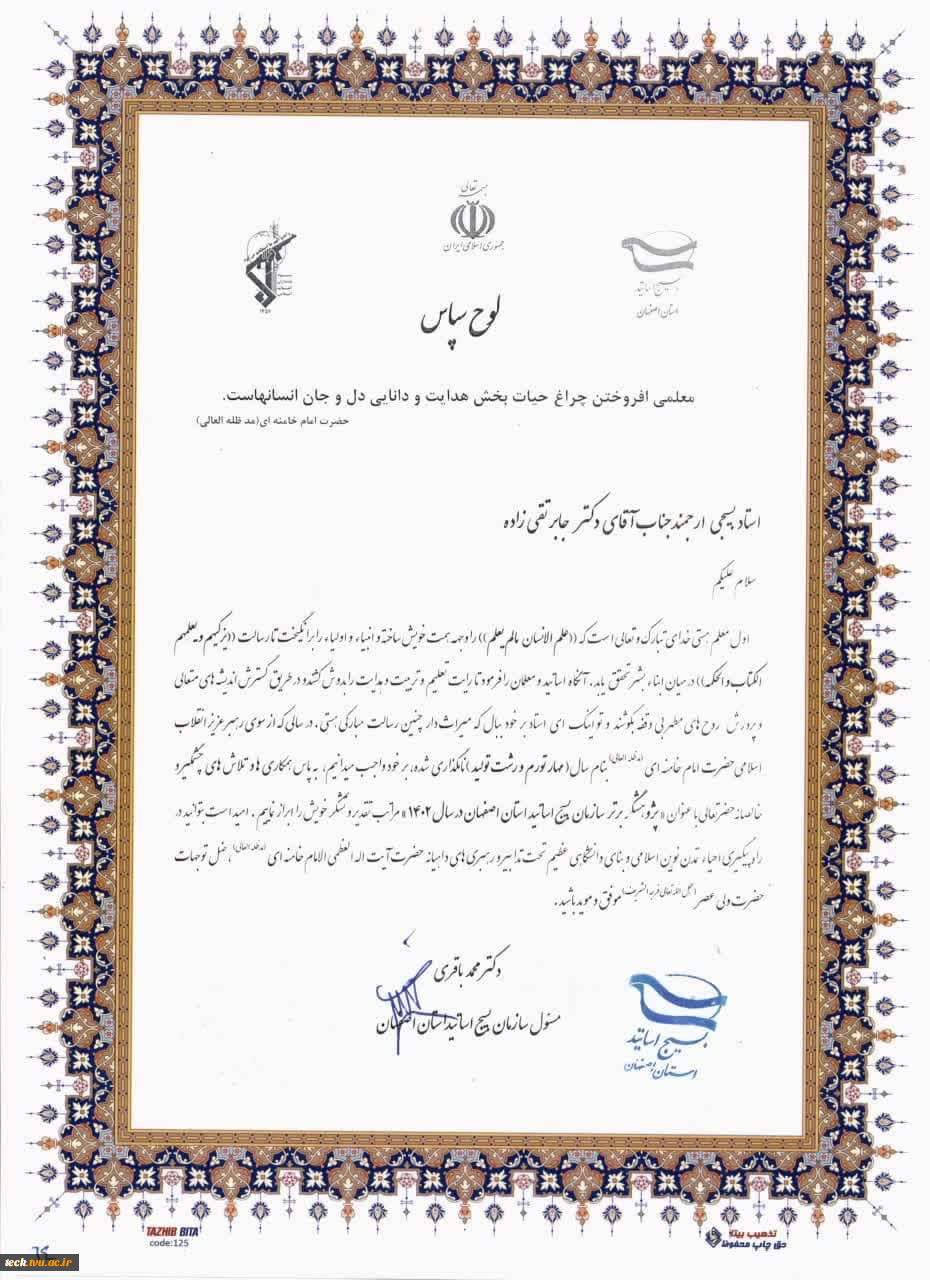 بسمه تعالی
جمهوری اسلامی ایران
بسیج اساتید
استان اصفهان
۱۳۵۷
لوح سپاس
معلمی افروختن چراغ حیات بخش هدایت و دانایی دل و جان انسانهاست.
حضرت امام خامنه ای(مد ظله العالی)
استاد بسیجی ارجمند جناب آقای دکتر جابر تقی زاده
سلام علیکم
اول معلم هستی خدای تبارک و تعالی است که ((علم الانسان مالم یعلم)) را وجهه همت خویش ساخته و انبیاء و اولیاء را برانگیخت تا رسالت ((یزکیهم و یعلمهم
الکتاب و الحکمه)) در میان ابناء بشر تحقق یابد. آنگاه اساتید و معلمان را فرمود تا رایت تعلیم و تربیت و هدایت را بدوش کشند و در طریق گسترش اندیشه های متعالی
و پرورش روح های مطهر بی وقفه بکوشند و تو اینک ای استاد بر خود ببال که میراث دار چنین رسالت مبارکی هستی. در سالی که از سوی رهبر عزیز انقلاب
اسلامی حضرت امام خامنه ای (مد ظله العالی) بنام سال (مهار تورم و رشد تولید) نامگذاری شده، بر خود واجب میدانیم، به پاس همکاری ها و تلاش های چشمگیر و
خالصانه حضرتعالی با عنوان « پژوهشگر برتر سازمان بسیج اساتید استان اصفهان در سال ۱۴۰۲ » مراتب تقدیر و تشکر خویش را ابراز نماییم. امید است بتوانید در
راه پیگیری احیاء تمدن نوین اسلامی و بنای دانشگاهی عظیم تحت تدابیر و رهبری های داهیانه حضرت آیت اله العظمی الامام خامنه ای (مد ظله العالی)، در ظل توجهات
حضرت ولی عصر (عجل الله تعالی فرجه الشریف) موفق و موید باشید.
دکتر محمد باقری
مسئول سازمان بسیج اساتید استان اصفهان
بسیج اساتید
استان اصفهان
TAZHIB BITA
code:125
تذهیب بیتا
حق چاپ محفوظ
teck.tvu.ac.ir